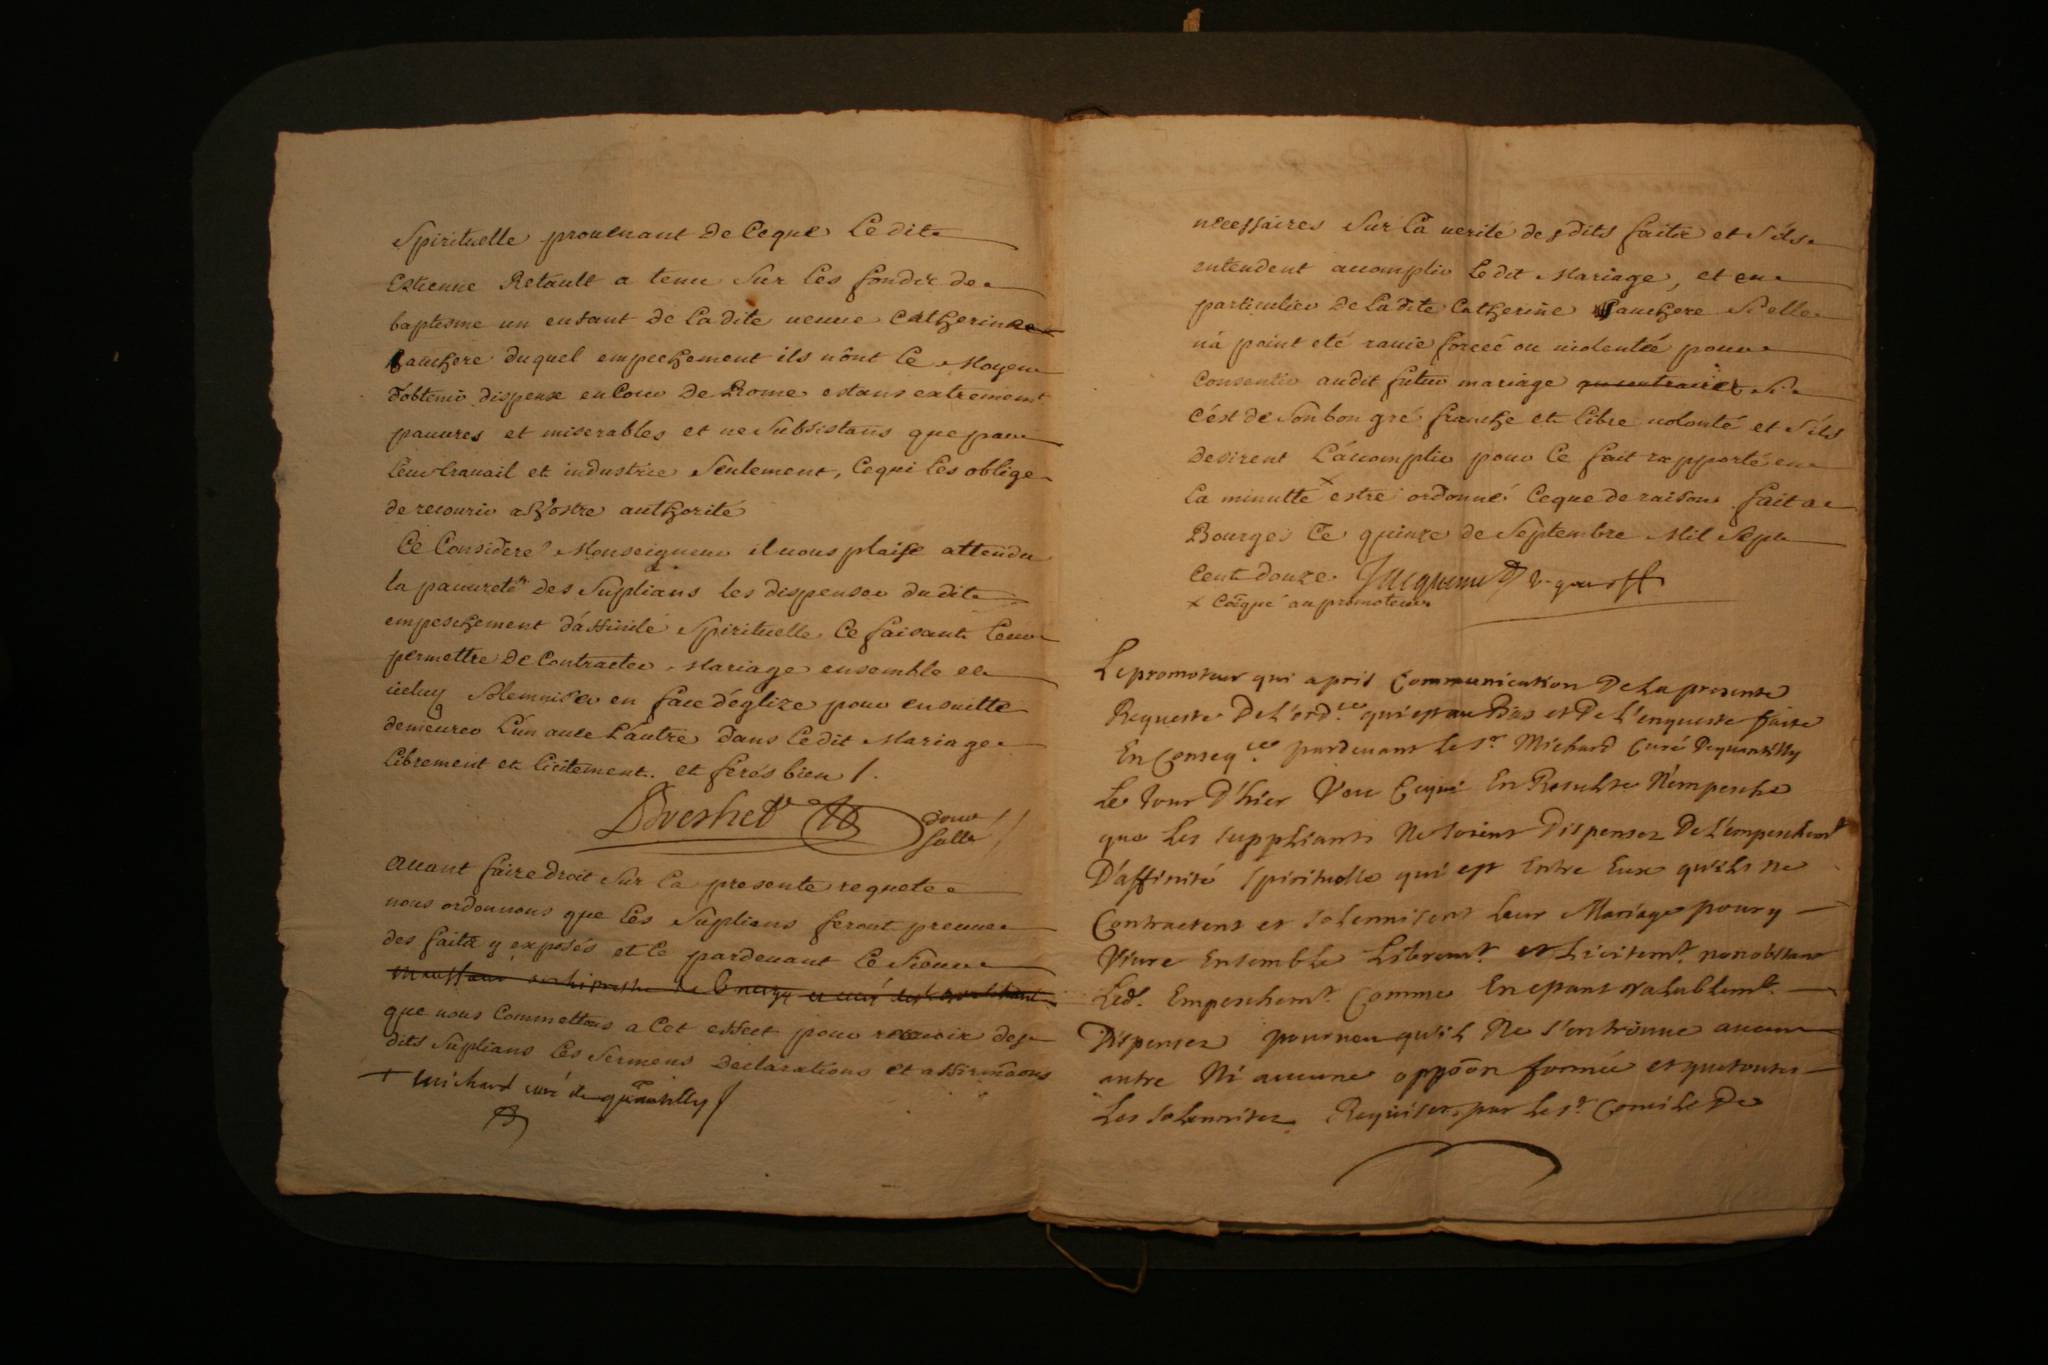 Spirituelle prouenant de ce que Ledit
Estienne Retault a tenu sur Les fondz de
baptesme un enfant de Ladite ueuue Catherine
fauchere duquel empechement ils nônt Le Moyen
d'obtenir dispense en Cour de Rome estans extremement
pauures et miserables et ne Subsistans que par
Leur trauail et industrie Seulement, Ce qui Les oblige
de recourir a Vostre authorité
Ce Consideré Monseigneur il uous plaise attendu
la pauureté des Suplians les dispenser dudit
empeschement dáffinité Spirituelle Ce faisant Leur
permettre de Contracter Mariage ensemble et
iceluy Solemniser en face d'églize pour ensuitte
demeurer L'un auec L'autre dans Ledit Mariage
Librement et licitement. et ferés bien /.
auant faire droit Sur La presente requete
nous ordonnons que Les Suplians feront preuue
des faitz y exposés et ce pardeuant Le Sieur
que nous Commettons a Cet effect pour receuoir des
dits Suplians Les Sermens Declarations et affirmãons
+ Michard curé de quantilly /
necessaires Sur La uerité desdits faitz et S'ils
entendent accomplir Ledit Mariage, et en
particulier de Ladite Catherine fauchere Si elle
n'a point eté rauie forceé ou uiolenteé pour
Consentir audit futur mariage au contraire Si
c'ést de Son bon gré franche et Libre uolonté et S'ils
desirent L'accomplir pour Ce fait rapporté en
La minutte x estre ordonné Ce que de raison. fait a
Bourges Ce quinze de Septembre Mil Sept
Cent douze.
x Cõẽqué au promoteur
Le promoteur qui a pris Communication De La presente
Requeste De L'ord.ce qui est au Bas et De L'enqueste faite
En Conseq.ce pardeuant le Sr. Michard Curé De quantilly
Le Jour D'hier Veu Ce qui En Resulte N'empesche
que Les suppliants Ne soient Dispensez De L'empeschemt
D'affinité Spirituelle qui est Entre Eux qu'ils ne
Contractent et solemnisent Leur Mariage pour y
Viure Ensemble Libremt. et Licitemt. nonobstant
Led. Empeschemt. Comme En estant Valablemt.
Dispensez pourueu qu'il Ne s'en trouue aucun
autre Ni aucune oppõon formée et que toutes
Les solemnitez Requises par le St. Concile De